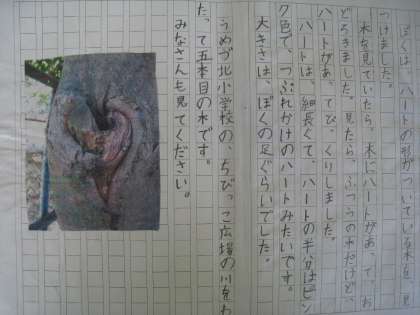 ぼくは、ハートの形がついている木を見
つけました。
木を見ていたら、木にハートがあって、お
どろきました。見たら、ふつうの木だけど、
ハートがあってびっくりしました。
ハートは、細長くて、ハートの半分はピン
ク色で、つぶれかけのハートみたいです。
大きさは、ぼくの足ぐらいでした。
うめづ北小学校の、ちびっこ広場の川をわ
たって五本目の木です。
みなさんも見てください。